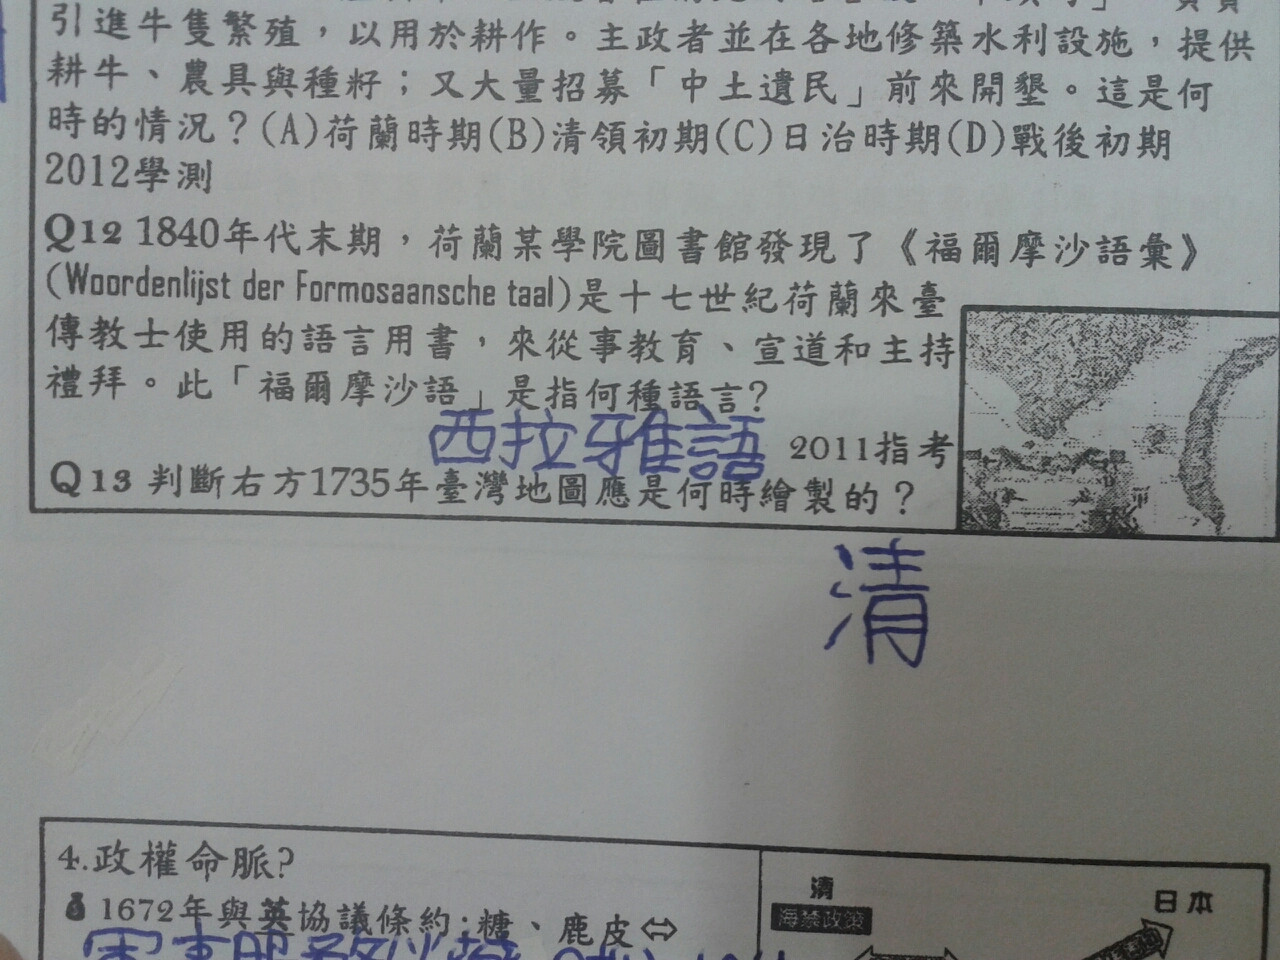 引進牛隻繁殖，以用於耕作。主政者並在各地修築水利設施，提供
耕牛、農具與種籽；又大量招募「中土遺民」前來開墾。這是何
時的情況？(A)荷蘭時期(B)清領初期(C)日治時期(D)戰後初期
2012學測
Q12 1840年代末期，荷蘭某學院圖書館發現了《福爾摩沙語彙》
(Woordenlijst der Formosaansche taal)是十七世紀荷蘭來臺
傳教士使用的語言用書，來從事教育、宣道和主持
禮拜。此「福爾摩沙語」是指何種語言?
西拉雅語 2011指考
Q13 判斷右方1735年臺灣地圖應是何時繪製的？
清
4.政權命脈?
1672年與英協議條約:糖、鹿皮⇔
清
海禁政策
日本